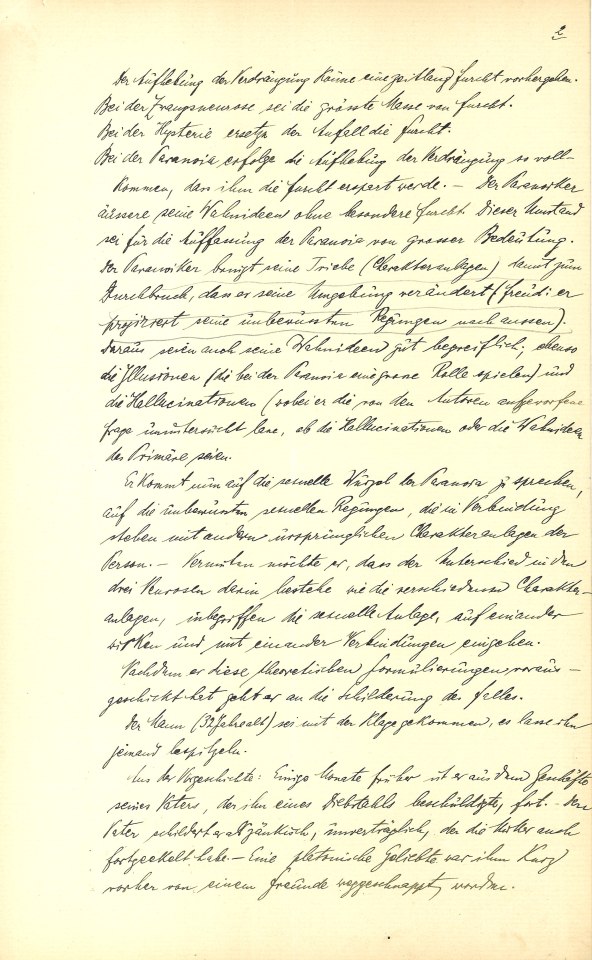 2
Der Aufhebung der Verdrängung könne eine zeitlang Furcht vorhergehen.
Bei der Zwangsneurose sei die grösste Masse von Furcht.
Bei der Hysterie ersetze der Anfall die Furcht.
Bei der Paranoia erfolge die Aufhebung der Verdrängung so voll-
kommen, dass ihm die Furcht erspart werde. — Der Paranoiker
äussere seine Wahnideen ohne besondere Furcht. Dieser Umstand
sei für die Auffassung der Paranoia von grosser Bedeutung.
Der Paranoiker bringt seine Triebe (Charakteranlagen) damit zum
Durchbruch, dass er seine Umgebung verändert (Freud: er
projiziert seine unbewussten Regungen nach aussen).
Daraus seien auch seine Wahnideen gut begreiflich; ebenso
die Illusionen (die bei der Paranoia eine grosse Rolle spielen) und
die Hallucinationen (wobei er die von den Autoren aufgeworfene
Frage ununtersucht lasse, ob die Hallucinationen oder die Wahnideen
das Primäre seien.
Er kommt nun auf die sexuelle Wurzel der Paranoia zu sprechen,
auf die unbewussten sexuellen Regungen, die in Verbindung
stehen mit andern ursprünglichen Charakteranlagen der
Person. — Vermuten möchte er, dass der Unterschied in den
drei Neurosen darin bestehe wie die verschiedenen Charakter-
anlagen, inbegriffen die sexuelle Anlage, aufeinander
wirken und mit einander Verbindungen eingehen.
Nachdem er diese theoretischen Formulierungen voraus-
geschickt hat geht er an die Schilderung des Falles.
Der Mann (37 Jahre alt) sei mit der Klage gekommen, es lasse ihn
jemand bespitzeln.
Aus der Vorgeschichte: Einige Monate früher ist er aus dem Geschäfte
seines Vaters, der ihn eines Diebstahls beschuldigte, fort. — Den
Vater schildert er als zänkisch, unverträglich, der die Mutter auch
fortgeekelt habe — Eine platonische Geliebte war ihm kurz
vorher von einem Freunde weggeschnappt worden.